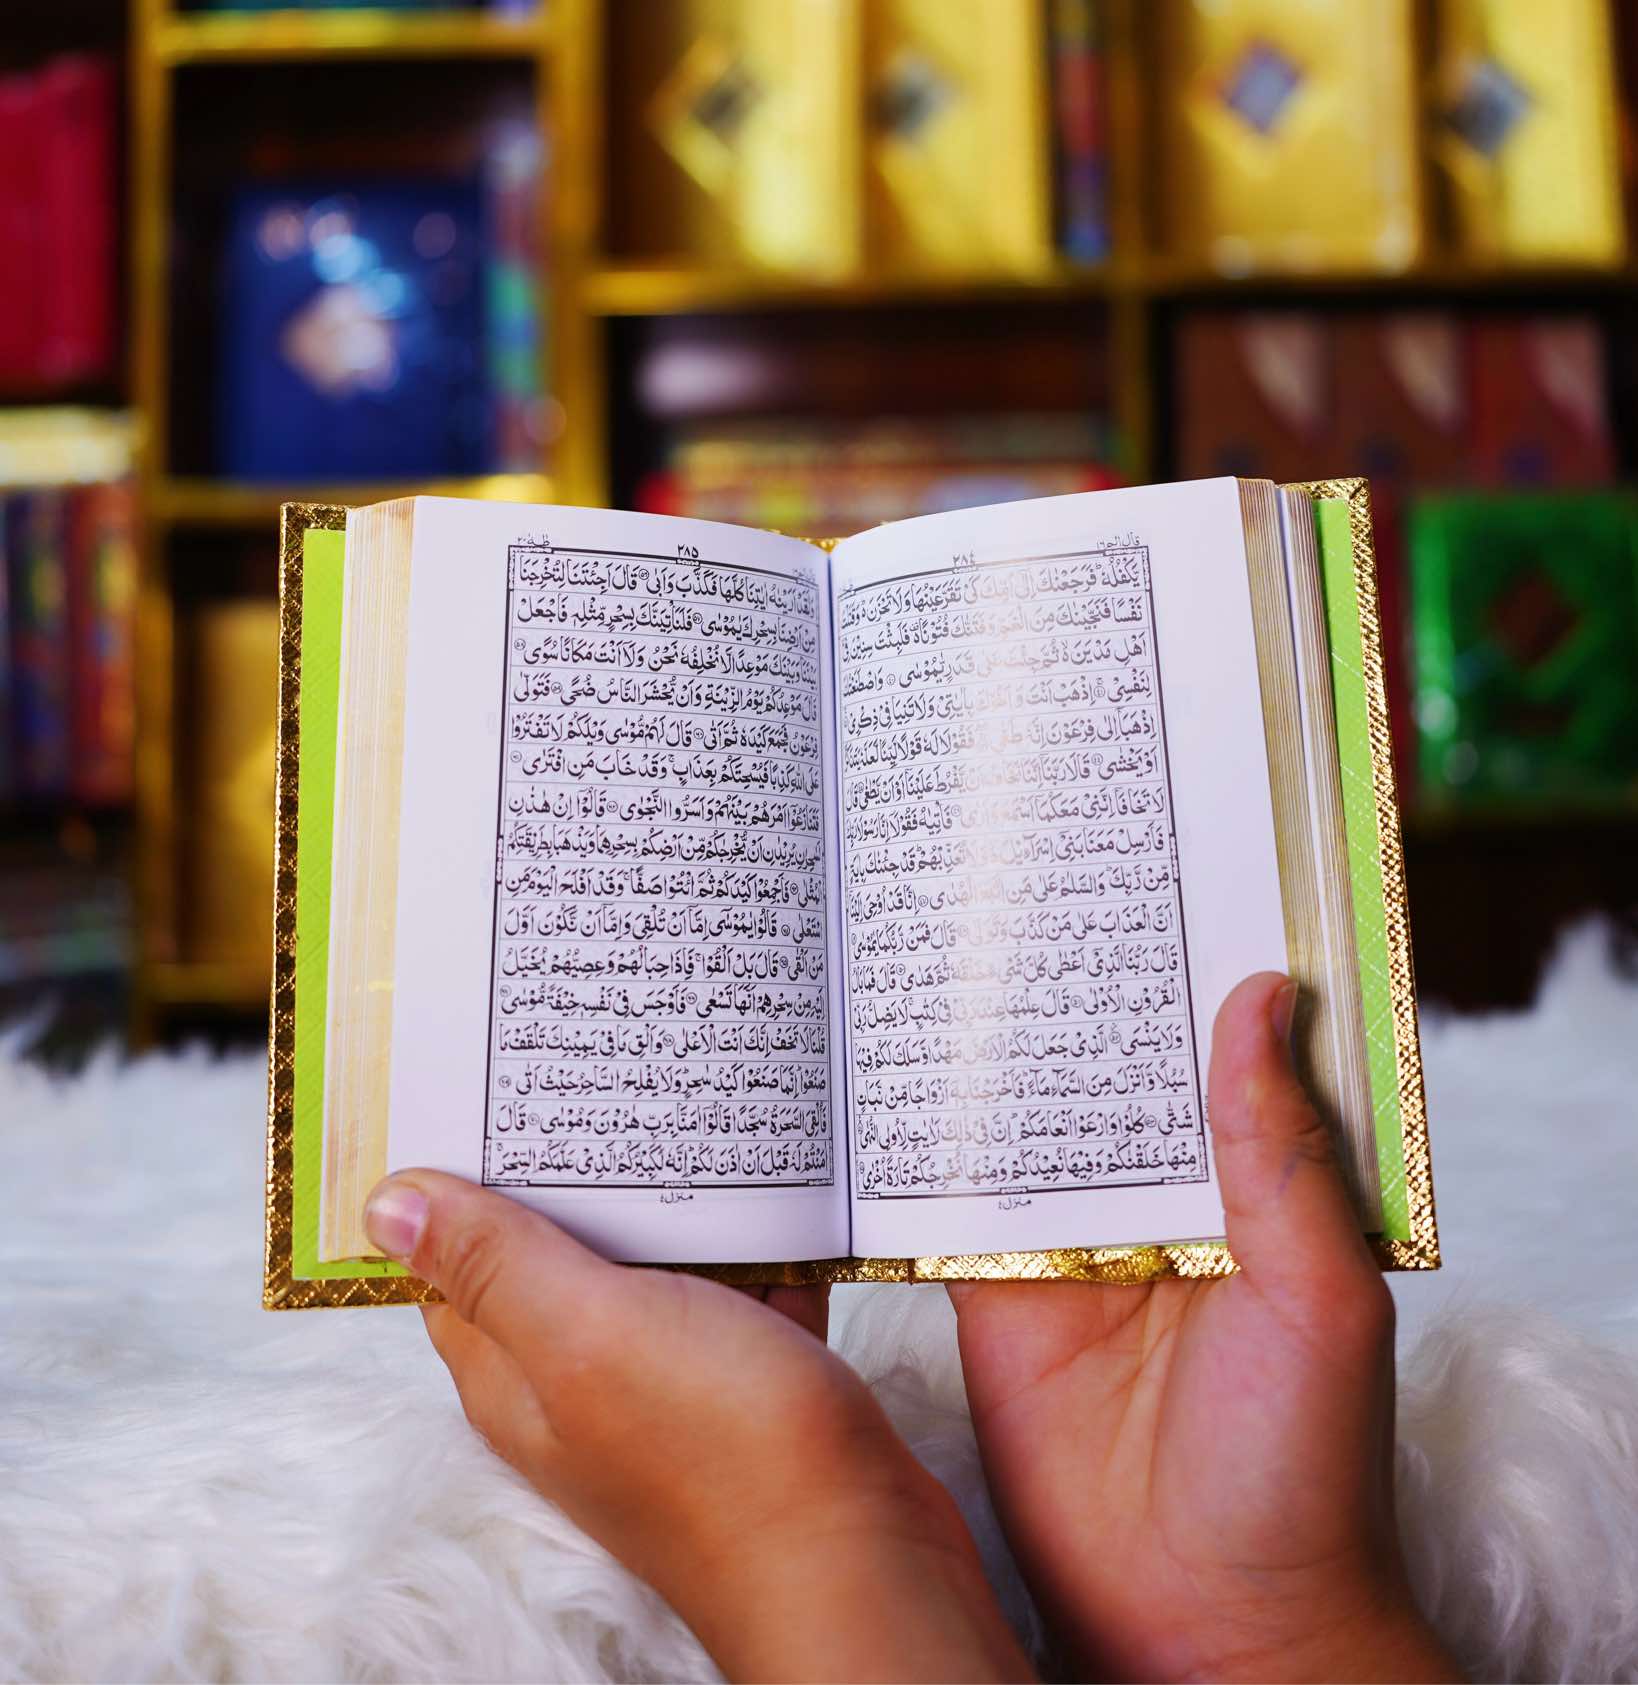 قال الم ١٦
٢٨٤
يَّكْفُلُهٗ ؕ فَرَجَعْنٰكَ اِلٰۤى اُمِّكَ كَیْ تَقَرَّ عَيْنُهَا وَلَا تَحْزَنَ ؕ۬ وَقَتَلْتَ
نَفْسًا فَنَجَّيْنٰكَ مِنَ الْغَمِّ وَفَتَنّٰكَ فُتُوْنًا ۬۟ فَلَبِثْتَ سِنِيْنَ فِیْۤ
اَهْلِ مَدْيَنَ ۙ۬ ثُمَّ جِئْتَ عَلٰى قَدَرٍ يّٰمُوْسٰى ۝۴۰ وَاصْطَنَعْتُكَ
لِنَفْسِیْ ۝۴۱ اِذْهَبْ اَنْتَ وَ اَخُوْكَ بِاٰيٰتِیْ وَلَا تَنِيَا فِیْ ذِكْرِیْ ۝۴۲
اِذْهَبَاۤ اِلٰى فِرْعَوْنَ اِنَّهٗ طَغٰى ۝۴۳ فَقُوْلَا لَهٗ قَوْلًا لَّيِّنًا لَّعَلَّهٗ يَتَذَكَّرُ
اَوْ يَخْشٰى ۝۴۴ قَالَا رَبَّنَاۤ اِنَّنَا نَخَافُ اَنْ يَّفْرُطَ عَلَيْنَاۤ اَوْ اَنْ يَّطْغٰى ۝۴۵ قَالَ
لَا تَخَافَاۤ اِنَّنِیْ مَعَكُمَاۤ اَسْمَعُ وَاَرٰى ۝۴۶ فَاْتِيٰهُ فَقُوْلَاۤ اِنَّا رَسُوْلَا رَبِّكَ
فَاَرْسِلْ مَعَنَا بَنِیْۤ اِسْرَآءِيْلَ ۙ۬ وَلَا تُعَذِّبْهُمْ ؕ قَدْ جِئْنٰكَ بِاٰيَةٍ
مِّنْ رَّبِّكَ ؕ وَالسَّلٰمُ عَلٰى مَنِ اتَّبَعَ الْهُدٰى ۝۴۷ اِنَّا قَدْ اُوْحِیَ اِلَيْنَاۤ
اَنَّ الْعَذَابَ عَلٰى مَنْ كَذَّبَ وَتَوَلّٰى ۝۴۸ قَالَ فَمَنْ رَّبُّكُمَا يٰمُوْسٰى ۝۴۹
قَالَ رَبُّنَا الَّذِیْۤ اَعْطٰى كُلَّ شَیْءٍ خَلْقَهٗ ثُمَّ هَدٰى ۝۵۰ قَالَ فَمَا بَالُ
الْقُرُوْنِ الْاُوْلٰى ۝۵۱ قَالَ عِلْمُهَا عِنْدَ رَبِّیْ فِیْ كِتٰبٍ ۚ لَا يَضِلُّ رَبِّیْ
وَلَا يَنْسَى ۝۵۲ الَّذِیْ جَعَلَ لَكُمُ الْاَرْضَ مَهْدًا وَّسَلَكَ لَكُمْ فِيْهَا
سُبُلًا وَّاَنْزَلَ مِنَ السَّمَآءِ مَآءً ؕ فَاَخْرَجْنَا بِهٖۤ اَزْوَاجًا مِّنْ نَّبَاتٍ
شَتّٰى ۝۵۳ كُلُوْا وَارْعَوْا اَنْعَامَكُمْ ؕ اِنَّ فِیْ ذٰلِكَ لَاٰيٰتٍ لِّاُولِی النُّهٰى ۝۵۴
مِنْهَا خَلَقْنٰكُمْ وَفِيْهَا نُعِيْدُكُمْ وَمِنْهَا نُخْرِجُكُمْ تَارَةً اُخْرٰى ۝۵۵
منزل ٤
٢٨٥
طٰهٰ ٢٠
وَلَقَدْ اَرَيْنٰهُ اٰيٰتِنَا كُلَّهَا فَكَذَّبَ وَاَبٰى ۝۵۶ قَالَ اَجِئْتَنَا لِتُخْرِجَنَا
مِنْ اَرْضِنَا بِسِحْرِكَ يٰمُوْسٰى ۝۵۷ فَلَنَاْتِيَنَّكَ بِسِحْرٍ مِّثْلِهٖ فَاجْعَلْ
بَيْنَنَا وَبَيْنَكَ مَوْعِدًا لَّا نُخْلِفُهٗ نَحْنُ وَلَاۤ اَنْتَ مَكَانًا سُوًى ۝۵۸
قَالَ مَوْعِدُكُمْ يَوْمُ الزِّيْنَةِ وَاَنْ يُّحْشَرَ النَّاسُ ضُحًى ۝۵۹ فَتَوَلّٰى
فِرْعَوْنُ فَجَمَعَ كَيْدَهٗ ثُمَّ اَتٰى ۝۶۰ قَالَ لَهُمْ مُّوْسٰى وَيْلَكُمْ لَا تَفْتَرُوْا
عَلَى اللّٰهِ كَذِبًا فَيُسْحِتَكُمْ بِعَذَابٍ ۚ وَقَدْ خَابَ مَنِ افْتَرٰى ۝۶۱
فَتَنَازَعُوْۤا اَمْرَهُمْ بَيْنَهُمْ وَاَسَرُّوا النَّجْوٰى ۝۶۲ قَالُوْۤا اِنْ هٰذٰنِ
لَسٰحِرٰنِ يُرِيْدٰنِ اَنْ يُّخْرِجٰكُمْ مِّنْ اَرْضِكُمْ بِسِحْرِهِمَا وَيَذْهَبَا بِطَرِيْقَتِكُمُ
الْمُثْلٰى ۝۶۳ فَاَجْمِعُوْا كَيْدَكُمْ ثُمَّ ائْتُوْا صَفًّا ۚ وَقَدْ اَفْلَحَ الْيَوْمَ مَنِ
اسْتَعْلٰى ۝۶۴ قَالُوْا يٰمُوْسٰۤى اِمَّاۤ اَنْ تُلْقِیَ وَاِمَّاۤ اَنْ نَّكُوْنَ اَوَّلَ
مَنْ اَلْقٰى ۝۶۵ قَالَ بَلْ اَلْقُوْا ۚ فَاِذَا حِبَالُهُمْ وَعِصِيُّهُمْ يُخَيَّلُ
اِلَيْهِ مِنْ سِحْرِهِمْ اَنَّهَا تَسْعٰى ۝۶۶ فَاَوْجَسَ فِیْ نَفْسِهٖ خِيْفَةً مُّوْسٰى ۝۶۷
قُلْنَا لَا تَخَفْ اِنَّكَ اَنْتَ الْاَعْلٰى ۝۶۸ وَاَلْقِ مَا فِیْ يَمِيْنِكَ تَلْقَفْ مَا
صَنَعُوْا ؕ اِنَّمَا صَنَعُوْا كَيْدُ سٰحِرٍ ؕ وَلَا يُفْلِحُ السَّاحِرُ حَيْثُ اَتٰى ۝۶۹
فَاُلْقِیَ السَّحَرَةُ سُجَّدًا قَالُوْۤا اٰمَنَّا بِرَبِّ هٰرُوْنَ وَمُوْسٰى ۝۷۰ قَالَ
اٰمَنْتُمْ لَهٗ قَبْلَ اَنْ اٰذَنَ لَكُمْ ؕ اِنَّهٗ لَكَبِيْرُكُمُ الَّذِیْ عَلَّمَكُمُ السِّحْرَ ۚ
منزل ٤